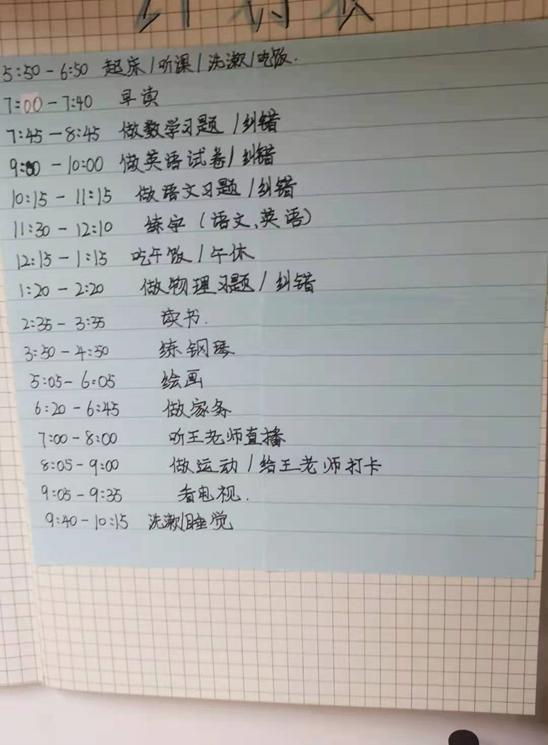 计划表
5:50-6:50 起床/听课/洗漱/吃饭.
7:00-7:40 早读
7:45-8:45 做数学习题/纠错
9:00-10:00 做英语试卷/纠错
10:15-11:15 做语文习题/纠错
11:30-12:10 练字(语文、英语)
12:15-1:15 吃午饭/午休
1:20-2:20 做物理习题/纠错
2:35-3:35 读书.
3:50-4:50 练钢琴
5:05-6:05 绘画
6:20-6:45 做家务
7:00-8:00 听王老师直播
8:05-9:00 做运动/给王老师打卡
9:05-9:35 看电视.
9:40-10:15 洗漱/睡觉